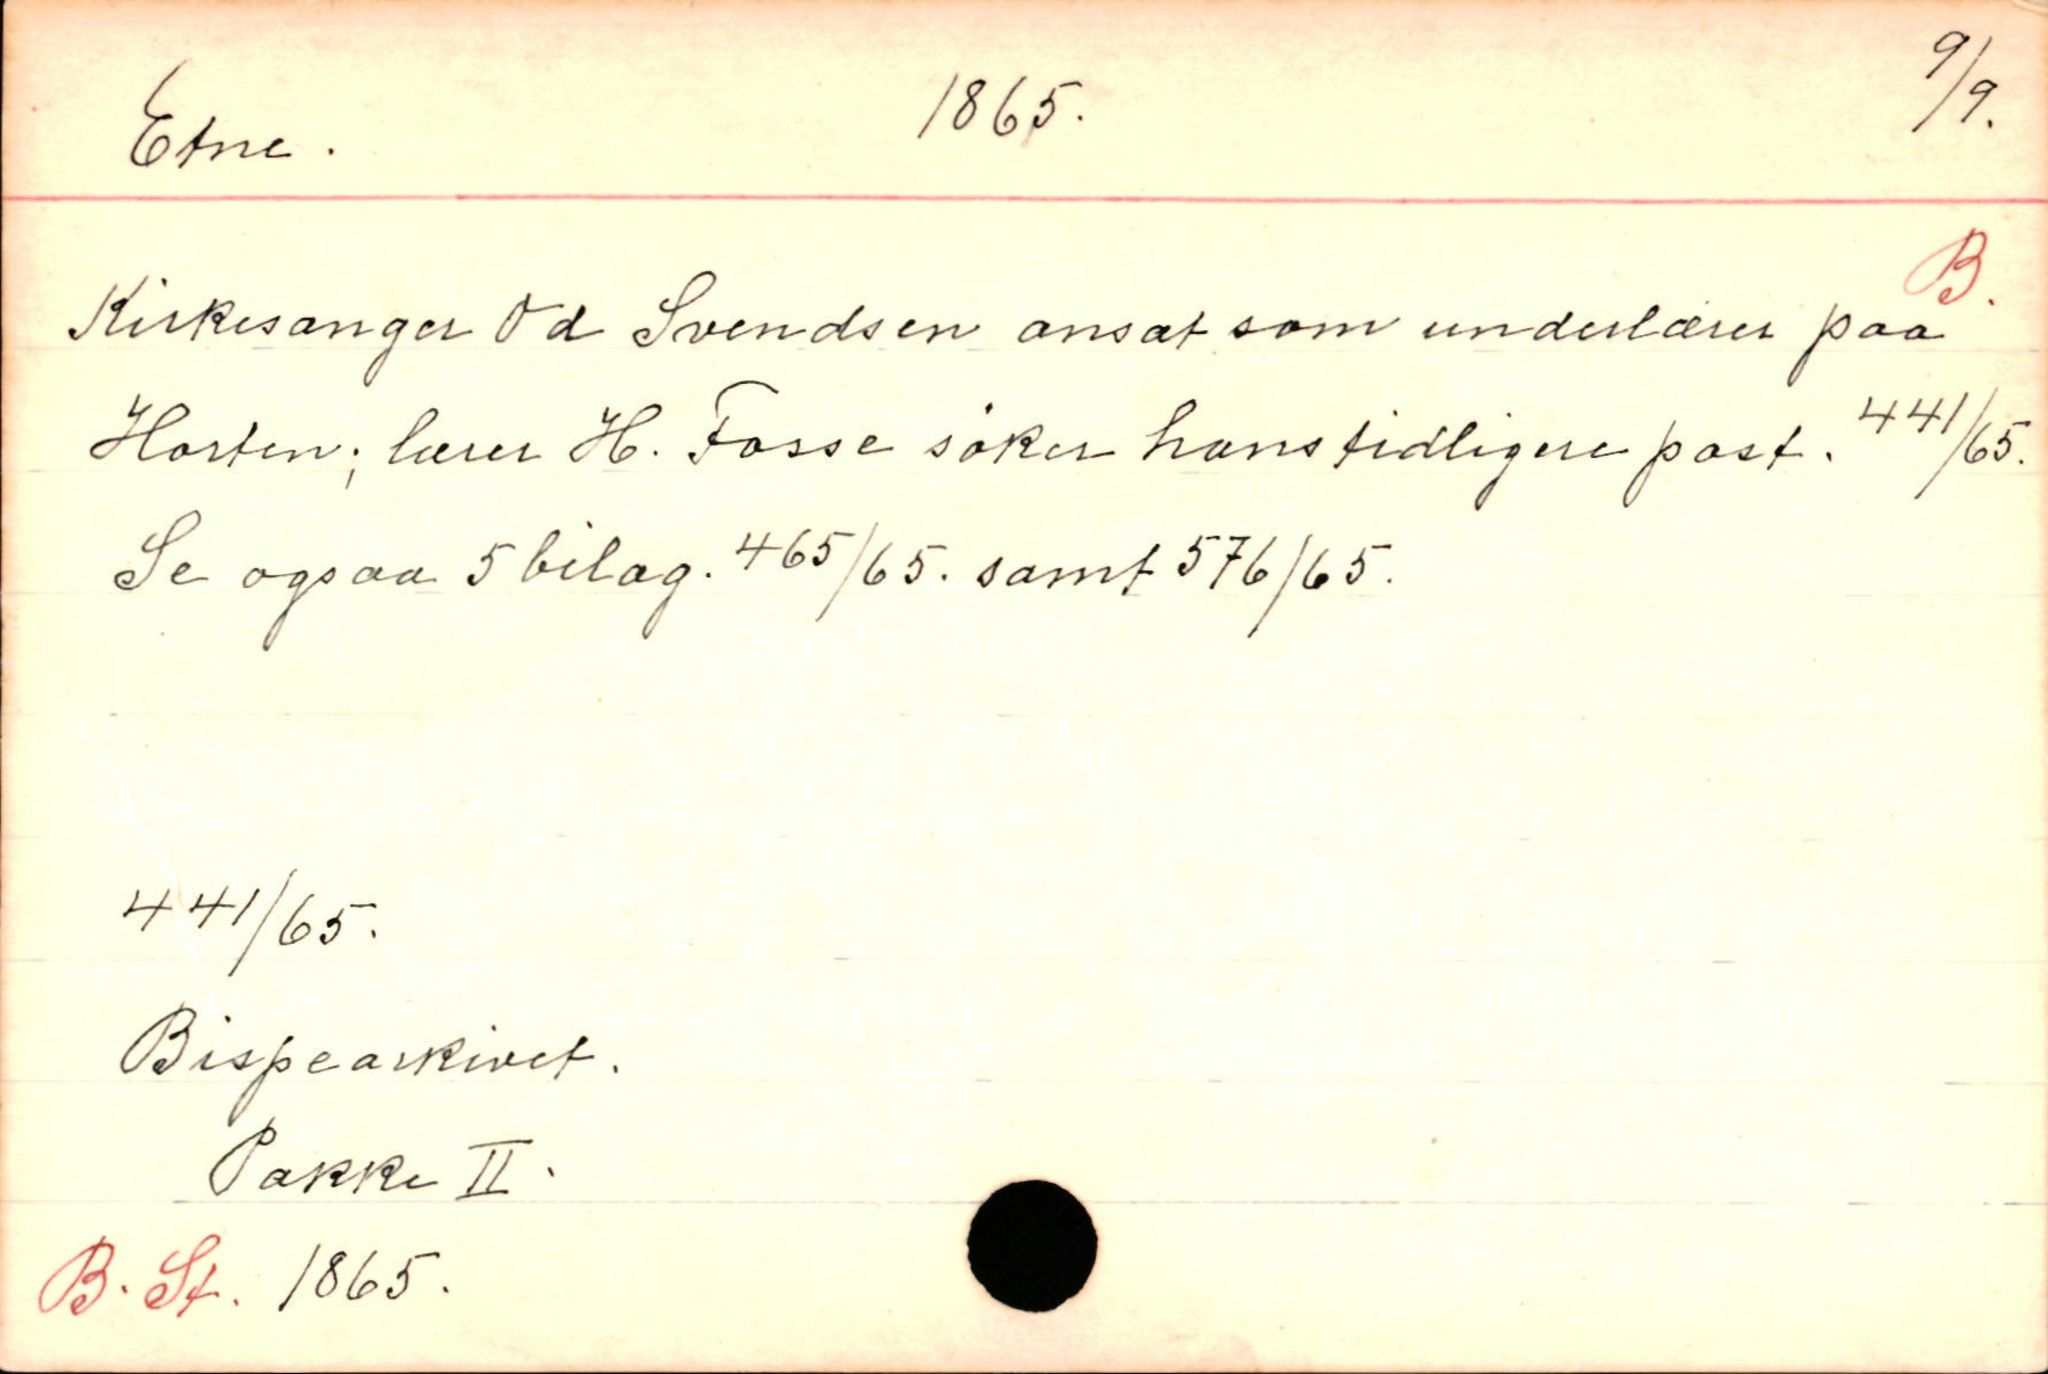 Etne. 1865. 9/9.
B.
Kirkesanger Od Svendsen ansat som underlærer paa
Horten; lærer H. Fosse søker hans tidligere post. 441/65.
Se ogsaa 5 bilag. 465/65. samt 576/65.
441/65.
Bispearkivet.
Pakke II.
B. St. 1865.